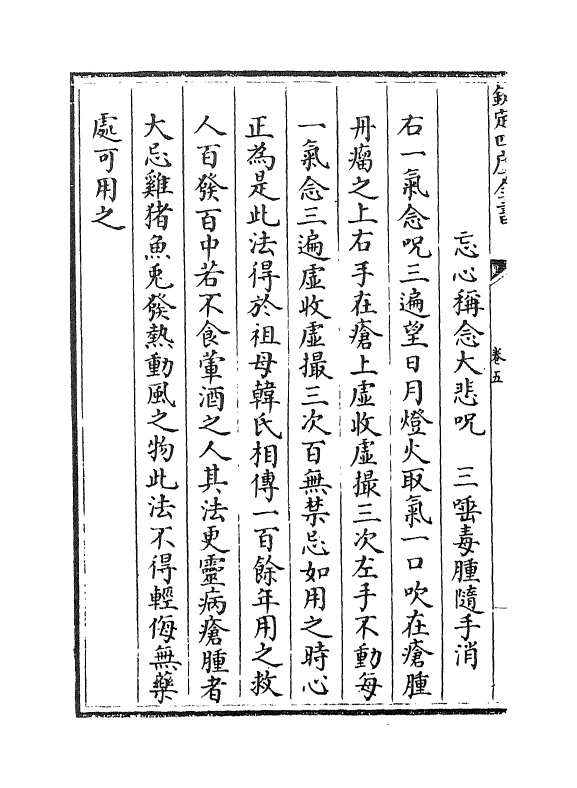 欽定四庫全書
卷五
忘心稱念大悲呪 三唾毒腫隨手消
右一氣念呪三遍望日月燈火取氣一口吹在瘡腫
丹瘤之上右手在瘡上虛收虛撮三次左手不動每
一氣念三遍虛收虛撮三次百無禁忌如用之時心
正為是此法得於祖母韓氏相傳一百餘年用之救
人百發百中若不食葷酒之人其法更靈病瘡腫者
大忌雞猪魚兎發熱動風之物此法不得輕侮無藥
處可用之